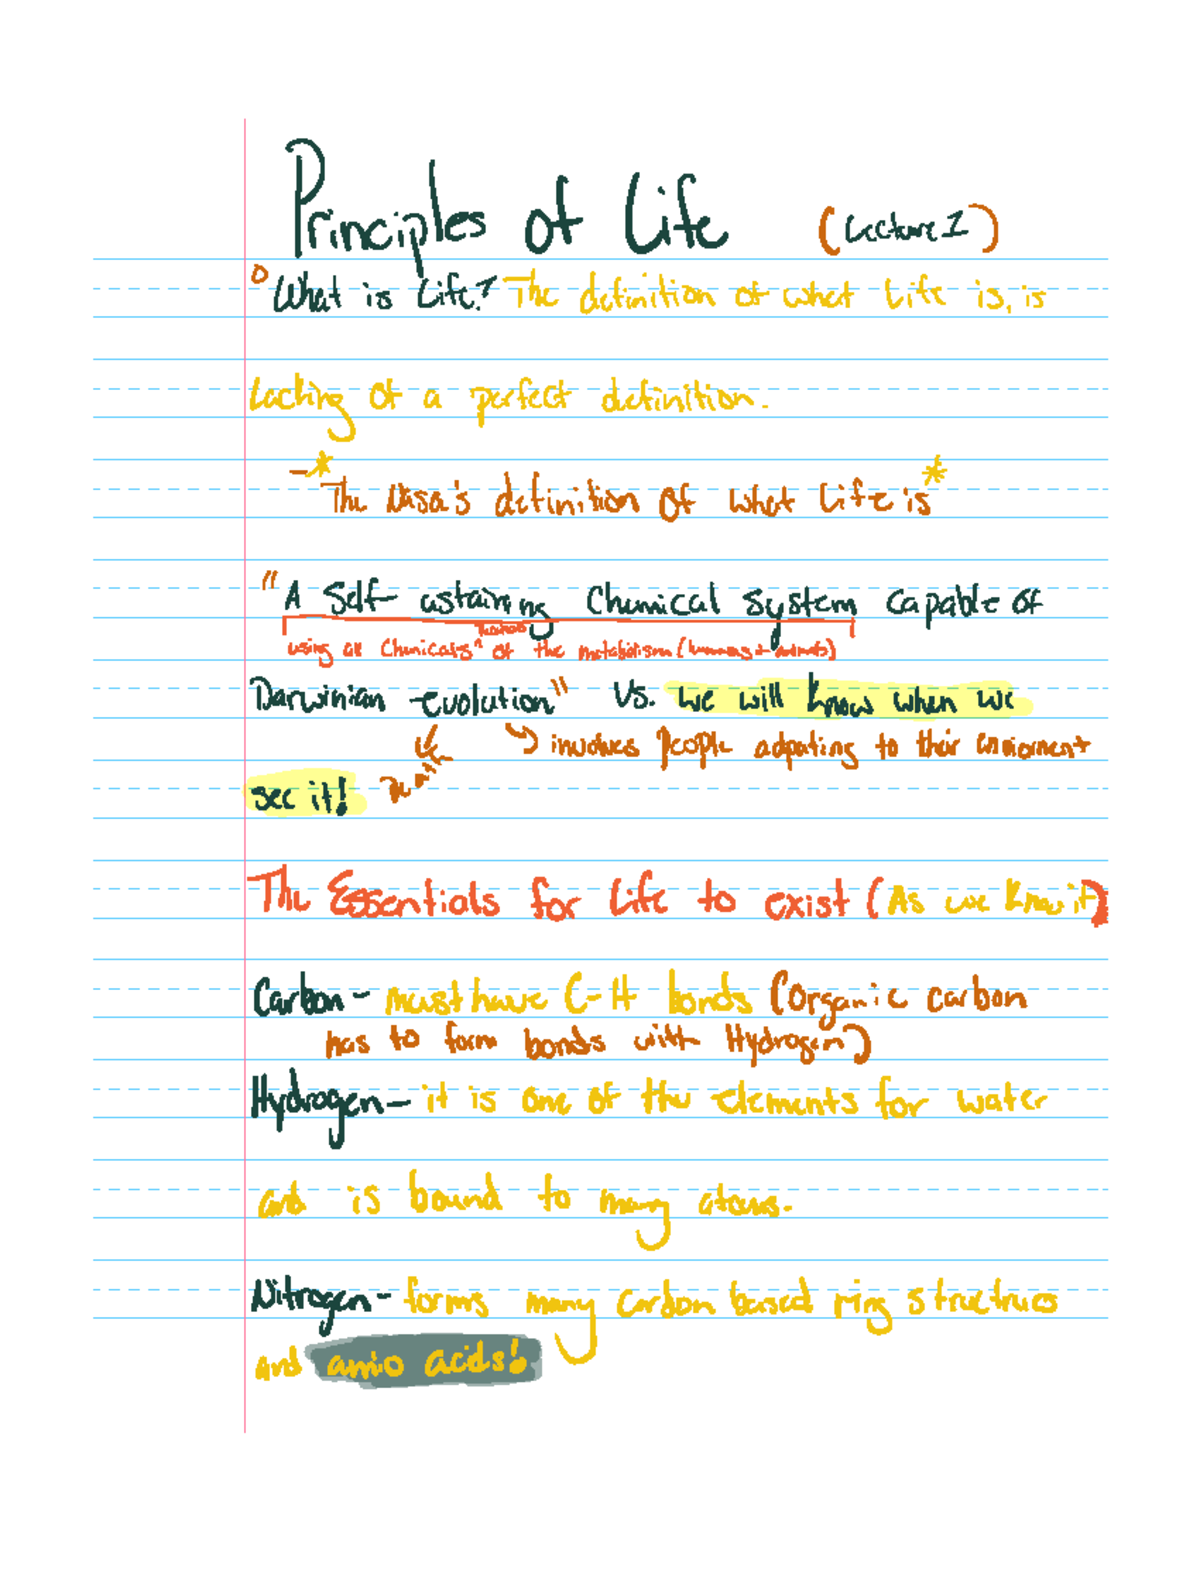 Principles of Life (Lecture 1)
° What is Life? The definition of what Life is, is
Lacking of a perfect definition.
-* The Nasa's definition of what Life is *
"A Self-ustaining Chemical System capable of
using all Chemicals ^ of the metabolism (humans + animals)
Darwinian evolution" Vs. we will know when we
involves People adpating to their
see it! Death
The Essentials for Life to exist (As we Know it)
Carbon - must have C-H bonds (Organic carbon
has to form bonds with Hydrogen)
Hydrogen - it is one of the elements for water
and is bound to many atoms.
Nitrogen - forms many carbon based ring
and amio acids!